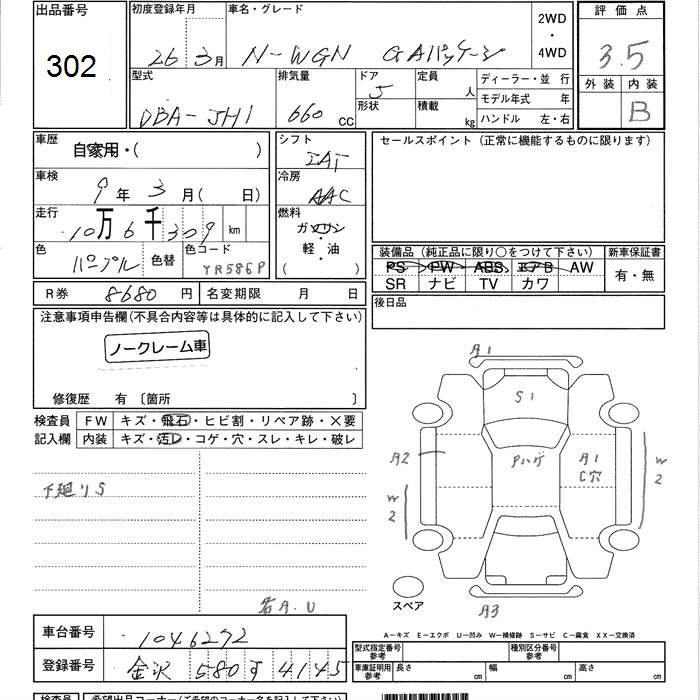 出品番号 302
初度登録年月 26 3月
車名・グレード N-WGN GAパッケージ
2WD ・ 4WD
評価点 3.5
外装 内装 B
型式 DBA-JH1
排気量 660 cc
ドア 5
形状
定員 人
積載 kg
ディーラー・並 行
モデル年式 年
ハンドル 左・右
車歴 自家用・( )
シフト IAT
セールスポイント (正常に機能するものに限ります)
車検 9年 3月( 日)
冷房 AAC
走行 10万6千309 km
燃料 ガソリン ・ 軽・油 ( )
色 パープル 色替 色コード YR586P
装備品 (純正品に限り〇をつけて下さい) 新車保証書
PS PW ABS エアB AW 有・無
SR ナビ TV カワ
R券 8680 円 名変期限 月 日
後日品
注意事項申告欄(不具合内容等は具体的に記入して下さい)
ノークレーム車
修復歴 有 〔箇所 〕
検査員 FW キズ・飛石・ヒビ割・リペア跡・✕要
記入欄 内装 キズ・汚レ・コゲ・穴・スレ・キレ・破レ
下廻りS
A1
S1
A2
Pハゲ
A1
C穴
W2
W2
スペア
A3
A-キズ E-エクボ U-凹み W-補修跡 S-サビ C-腐食 XX-交換済
車台番号 1046272
型式指定番号 参考 種別区分番号 参考
登録番号 金沢 580 す 4145
車庫証明用 参考 長さ cm 幅 cm 高さ cm
検査員 希望出品コーナー(ご希望のコーナー名を記入して下さい)